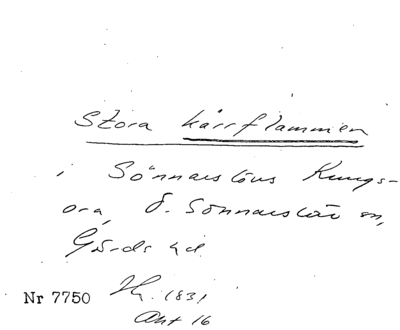 Stora kärrflammien
i Sönnarslövs Kungs-
ora, Ö. Sönnarslöv sn,
Gärds hd.
Nr 7750 Hy. 1831
Akt 16